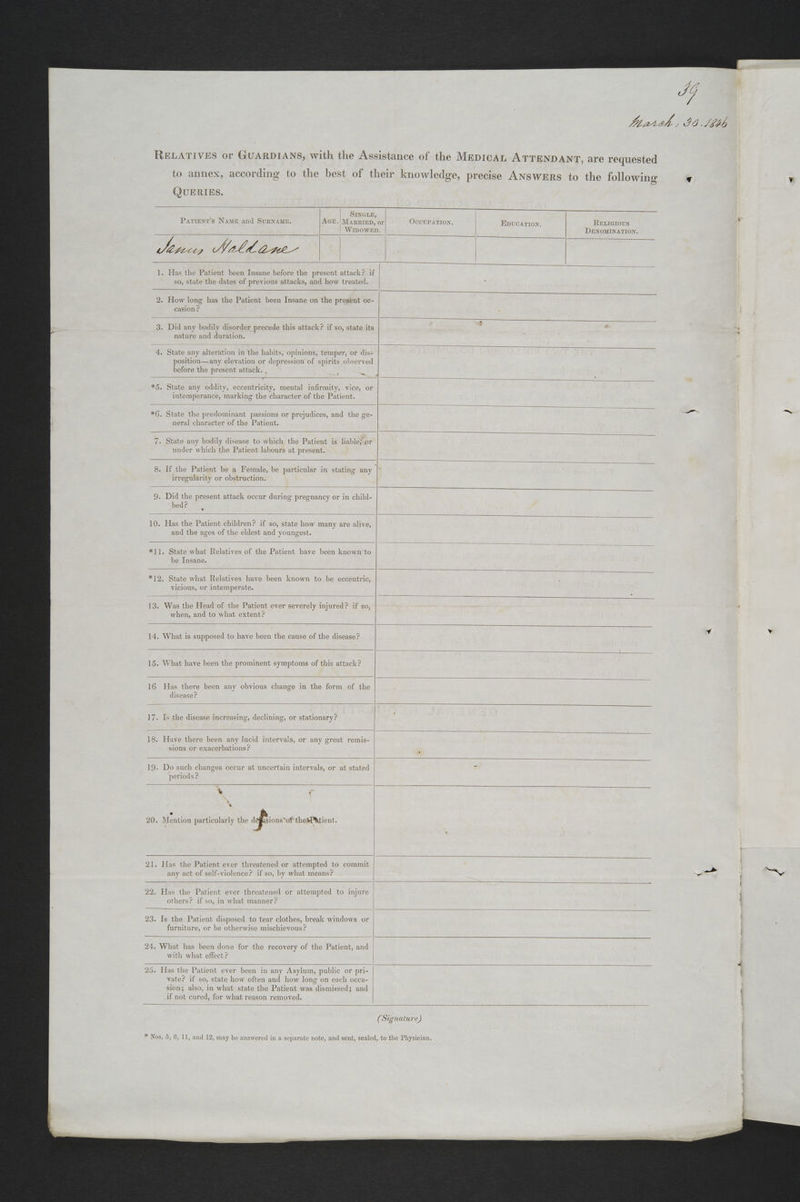 39
March . 30 . 1846
RELATIVES or GUARDIANS, with the Assistance of the MEDICAL ATTENDANT, are requested
to annex, according to the best of their knowledge, precise ANSWERS to the following
QUERIES.
PATIENT'S NAME and SURNAME.
AGE.
SINGLE,
MARRIED, or
WIDOWED.
OCCUPATION.
EDUCATION.
RELIGIOUS
DENOMINATION.
James Haldane
1. Has the Patient been Insane before the present attack? if
so, state the dates of previous attacks, and how treated.
2. How long has the Patient been Insane on the present oc-
casion?
3. Did any bodily disorder precede this attack? if so, state its
nature and duration.
4. State any alteration in the habits, opinions, temper, or dis-
position—any elevation or depression of spirits observed
before the present attack.
*5. State any oddity, eccentricity, mental infirmity, vice, or
intemperance, marking the character of the Patient.
*6. State the predominant passions or prejudices, and the ge-
neral character of the Patient.
7. State any bodily disease to which the Patient is liable, or
under which the Patient labours at present.
8. If the Patient be a Female, be particular in stating any
irregularity or obstruction.
9. Did the present attack occur during pregnancy or in child-
bed?
10. Has the Patient children? if so, state how many are alive,
and the ages of the eldest and youngest.
*11. State what Relatives of the Patient have been known to
be Insane.
*12. State what Relatives have been known to be eccentric,
vicious, or intemperate.
13. Was the Head of the Patient ever severely injured? if so,
when, and to what extent?
14. What is supposed to have been the cause of the disease?
15. What have been the prominent symptoms of this attack?
16 Has there been any obvious change in the form of the
disease?
17. Is the disease increasing, declining, or stationary?
18. Have there been any lucid intervals, or any great remis-
sions or exacerbations?
19. Do such changes occur at uncertain intervals, or at stated
periods?
20. Mention particularly the delusions of the Patient.
21. Has the Patient ever threatened or attempted to commit
any act of self-violence? if so, by what means?
22. Has the Patient ever threatened or attempted to injure
others? if so, in what manner?
23. Is the Patient disposed to tear clothes, break windows or
furniture, or be otherwise mischievous?
24. What has been done for the recovery of the Patient, and
with what effect?
25. Has the Patient ever been in any Asylum, public or pri-
vate? if so, state how often and how long on each occa-
sion; also, in what state the Patient was dismissed; and
if not cured, for what reason removed.
(Signature)
* Nos. 5, 6, 11, and 12, may be answered in a separate note, and sent, sealed, to the Physician.